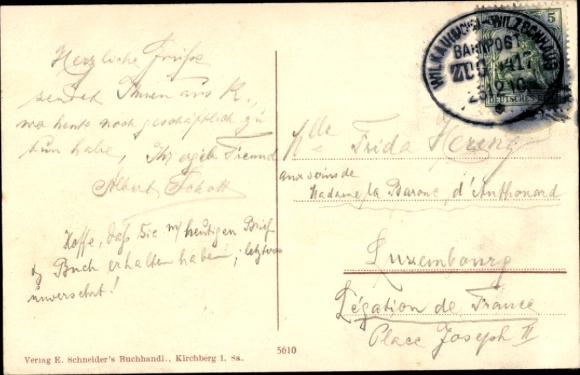 Herzliche Grüße
sendet Ihnen aus K.,
wo heute noch geschäftlich zu
tun habe, Ihr ergeb. Freund
Albert Schott
Hoffe, daß Sie m/ heutigen Brief
& Buch erhalten haben, letzteres
unversehrt!
Verlag E. Schneider's Buchhandl., Kirchberg i. Sa.
5610
WILKAU
BAHNPOST
ZUG
5
DEUTSCHES
Mlle Frida Hering
aux soins de
Madame la Baronne d'Anthouard
Luxembourg
Légation de France
Place Joseph II